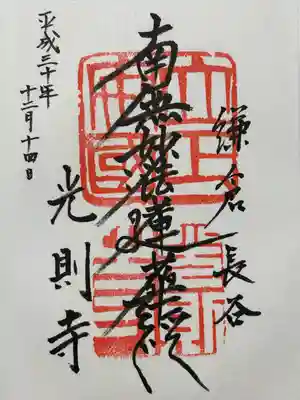 鎌倉 長谷
南無妙法蓮華経
光則寺
平成三十年
十二月十四日